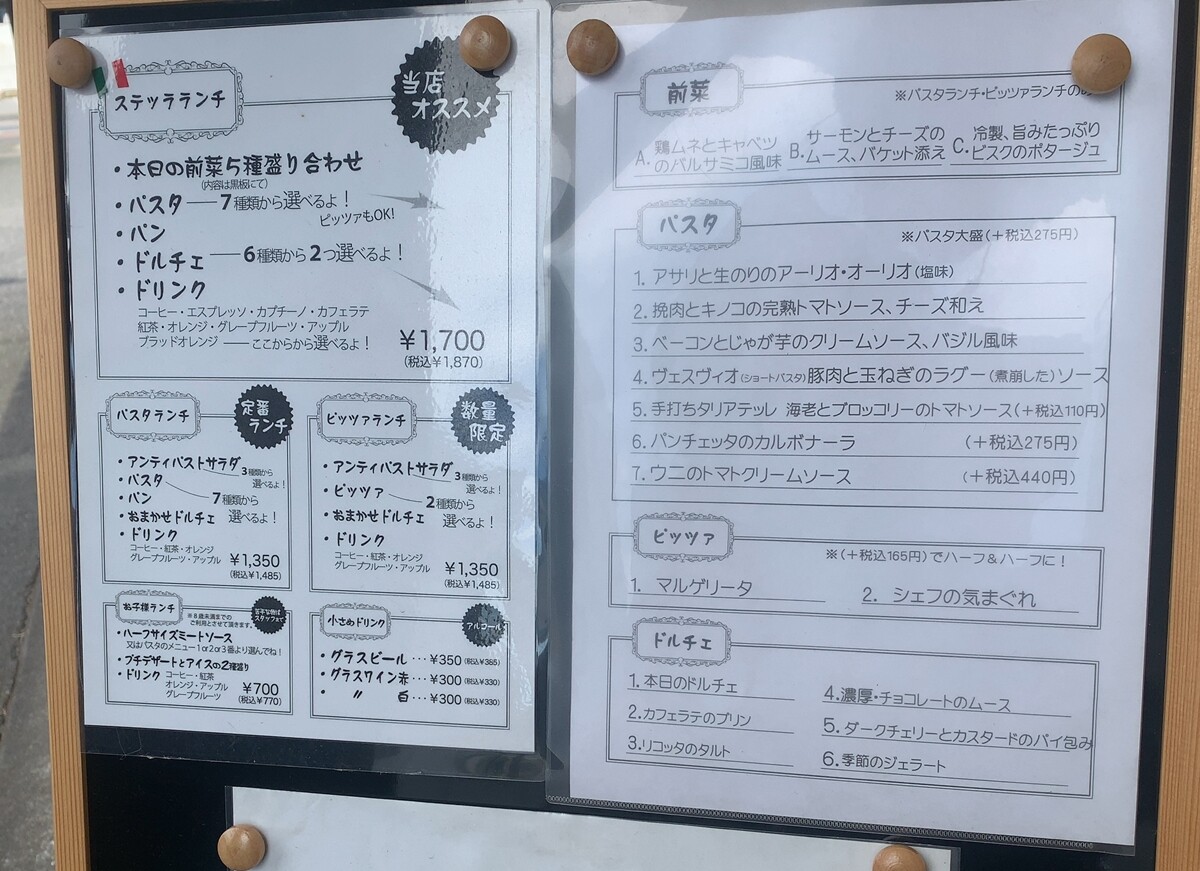 ステッラランチ
当店
オススメ
・本日の前菜5種盛り合わせ
(内容は黒板にて)
・パスタ — 7種類から選べるよ！
ピッツァもOK!
・パン
・ドルチェ — 6種類から2つ選べるよ！
・ドリンク
コーヒー・エスプレッソ・カプチーノ・カフェラテ
紅茶・オレンジ・グレープフルーツ・アップル
ブラッドオレンジ — ここからから選べるよ！
¥1,700
(税込¥1,870)
パスタランチ
定番
ランチ
・アンティパストサラダ
3種類から
選べるよ！
・パスタ
・パン
7種類から
選べるよ！
・おまかせドルチェ
・ドリンク
コーヒー・紅茶・オレンジ
グレープフルーツ・アップル
¥1,350
(税込¥1,485)
ピッツァランチ
数量
限定
・アンティパストサラダ
3種類から
選べるよ！
・ピッツァ
2種類から
選べるよ！
・おまかせドルチェ
・ドリンク
コーヒー・紅茶・オレンジ
グレープフルーツ・アップル
¥1,350
(税込¥1,485)
お子様ランチ
※8歳未満までの
ご利用とさせて頂きます。
・ハーフサイズミートソース
又はパスタのメニュー1or2or3番より選んでね！
・プチデザートとアイスの2種盛り
・ドリンク
コーヒー・紅茶
オレンジ・アップル
グレープフルーツ
¥700
(税込¥770)
小さめドリンク
アルコール
・グラスビール…¥350(税込¥385)
・グラスワイン赤…¥300(税込¥330)
・　〃　白…¥300(税込¥330)
前菜
※パスタランチ・ピッツァランチのみ
A.鶏ムネとキャベツ
のバルサミコ風味
B.サーモンとチーズの
ムース、バケット添え
C.冷製、旨みたっぷり
ビスクのポタージュ
パスタ
※パスタ大盛(＋税込275円)
1. アサリと生のりのアーリオ・オーリオ(塩味)
2. 挽肉とキノコの完熟トマトソース、チーズ和え
3. ベーコンとじゃが芋のクリームソース、バジル風味
4. ヴェスヴィオ(ショートパスタ)豚肉と玉ねぎのラグー(煮崩した)ソース
5. 手打ちタリアテッレ 海老とブロッコリーのトマトソース(＋税込110円)
6. パンチェッタのカルボナーラ (＋税込275円)
7. ウニのトマトクリームソース (＋税込440円)
ピッツァ
※(＋税込165円)でハーフ＆ハーフに！
1. マルゲリータ
2. シェフの気まぐれ
ドルチェ
1.本日のドルチェ
2.カフェラテのプリン
3.リコッタのタルト
4.濃厚・チョコレートのムース
5. ダークチェリーとカスタードのパイ包み
6.季節のジェラート